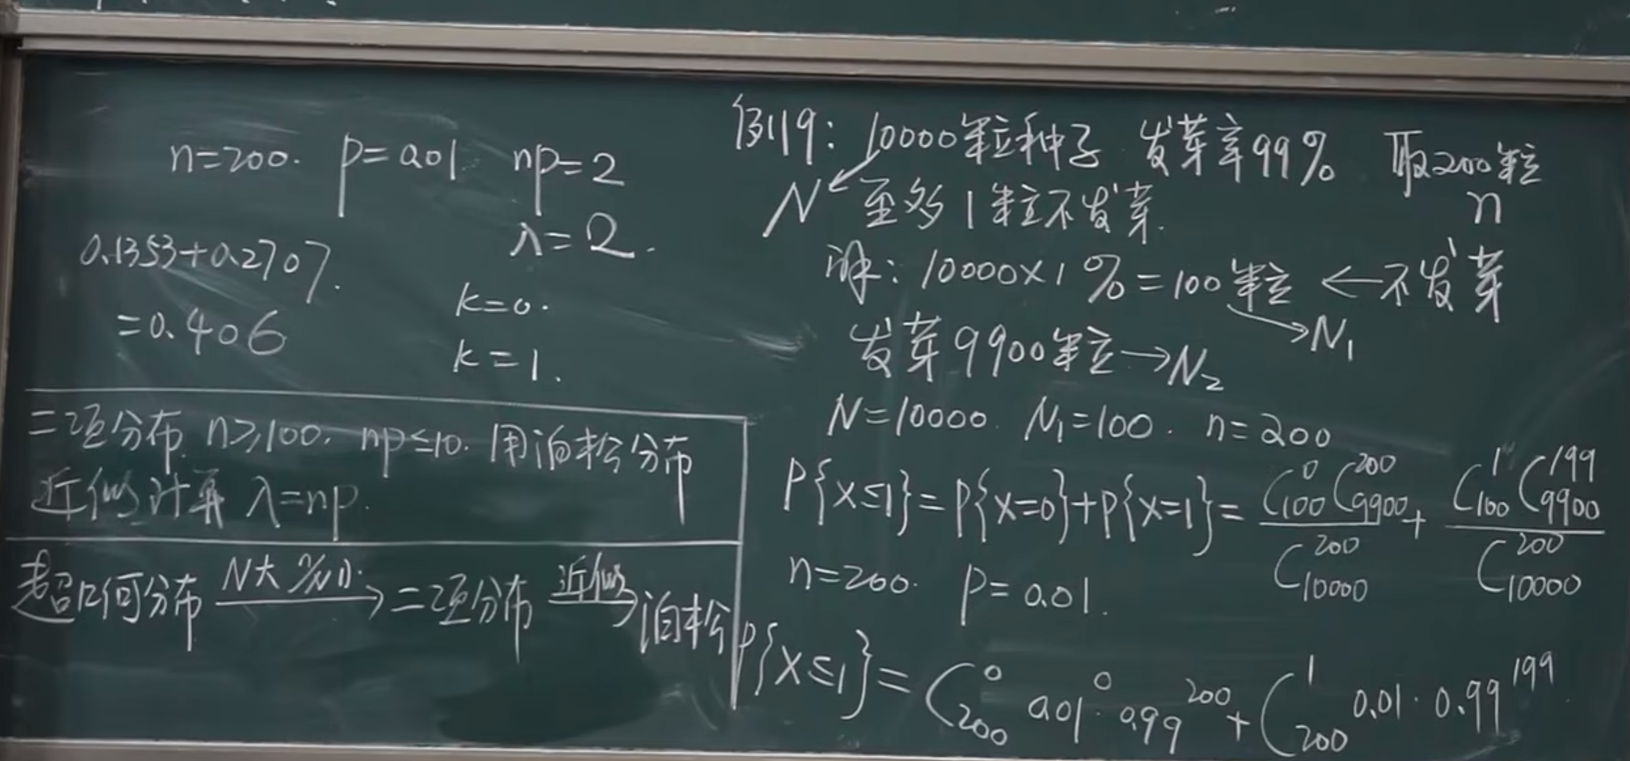 n=200. p=0.01 np=2
λ=2.
0.1353+0.2707.
=0.406
k=0.
k=1.
二项分布. n≥100. np≤10. 用泊松分布
近似计算 λ=np.
超几何分布 N大 n/N小. → 二项分布 近似 → 泊松
例19: 10000粒种子 发芽率99% 取200粒
N ← 至多1粒不发芽. n
解: 10000×1%=100粒 ← 不发芽
→ N₁
发芽9900粒 → N₂
N=10000. N₁=100. n=200
P{X≤1}=P{X=0}+P{X=1}= C₁₀₀⁰ C₉₉₀₀²⁰⁰ / C₁₀₀₀₀²⁰⁰ + C₁₀₀¹ C₉₉₀₀¹⁹⁹ / C₁₀₀₀₀²⁰⁰
n=200. p=0.01.
P{X≤1}= C₂₀₀⁰ 0.01⁰·0.99²⁰⁰ + C₂₀₀¹ 0.01·0.99¹⁹⁹